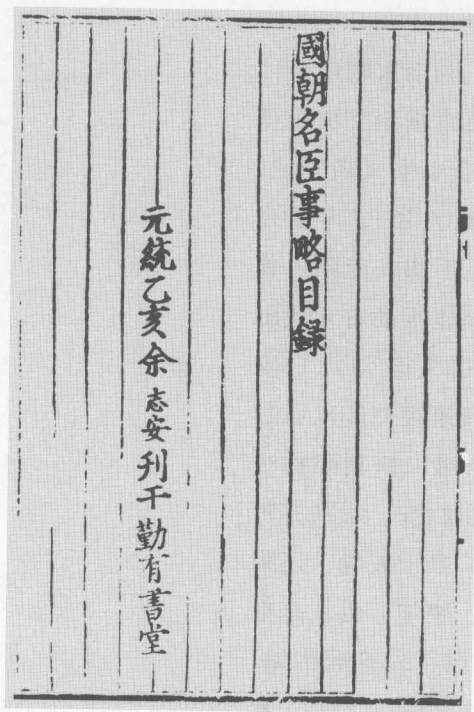 國朝名臣事略目錄
元統乙亥余志安刊于勤有書堂